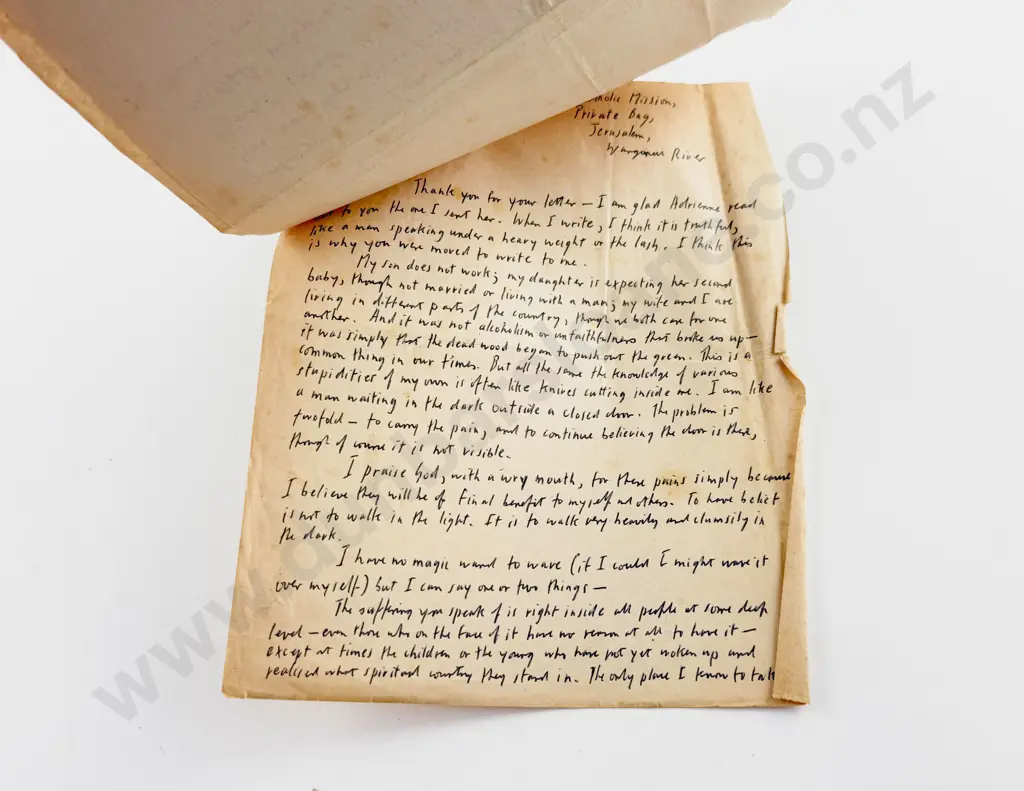 Mission,
Private Bag,
Jerusalem,
Wanganui River
Thank you for your letter — I am glad Adrienne read
to you the one I sent her. When I write, I think it is truthful,
like a man speaking under a heavy weight or the lash. I think this
is why you were moved to write to me.
My son does not work; my daughter is expecting her second
baby, though not married or living with a man; my wife and I are
living in different parts of the country, though we both care for one
another. And it was not alcoholism or unfaithfulness that broke us up —
it was simply that the dead wood began to push out the green. This is a
common thing in our times. But all the same the knowledge of various
stupidities of my own is often like knives cutting inside me. I am like
a man waiting in the dark outside a closed door. The problem is
twofold — to carry the pain, and to continue believing the door is there,
though of course it is not visible.
I praise God, with a wry mouth, for these pains simply because
I believe they will be of final benefit to myself and others. To have belief
is not to walk in the light. It is to walk very heavily and clumsily in
the dark.
I have no magic wand to wave (if I could I might wave it
over myself) but I can say one or two things —
The suffering you speak of is right inside all people at some deep
level — even those who on the face of it have no reason at all to have it —
except at times the children or the young who have not yet woken up and
realised what spiritual country they stand in. The only place I know to take
www.dunbarsloane.co.nz